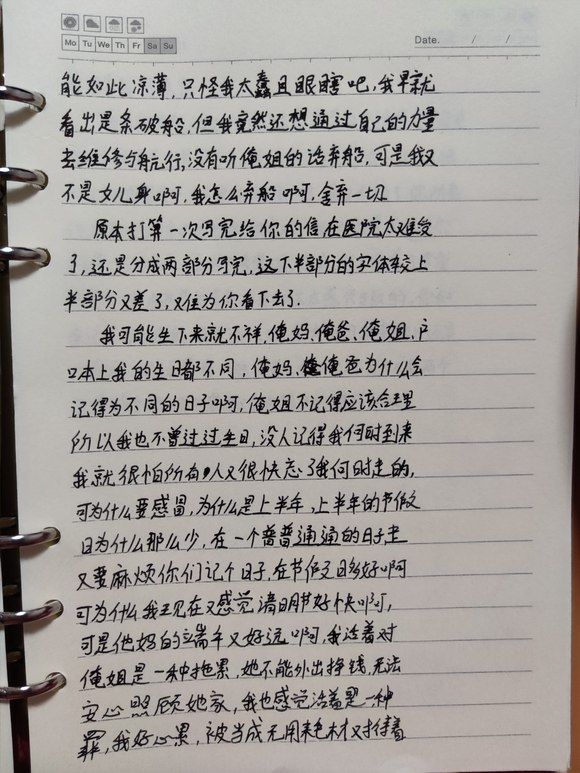 Mo Tu We Th Fr Sa Su
Date. / /
能如此凉薄，只怪我太蠢且眼瞎吧，我早就
看出是条破船，但我竟然还想通过自己的力量
去维修与航行，没有听俺姐的话弃船，可是我又
不是女儿身啊，我怎么弃船啊，舍弃一切
原本打算一次写完给你的信在医院太难受
了，还是分成两部分写完，这下半部分的字体较上
半部分又差了，又难为你看下去了.
我可能生下来就不祥，俺妈、俺爸、俺姐、户
口本上我的生日都不同，俺妈、俺爸为什么会
记得为不同的日子啊，俺姐不记得应该合理
所以我也不曾过过生日，没人记得我何时到来
我就很怕所有人又很快忘了我何时走的，
可为什么要感冒，为什么是上半年，上半年的节假
日为什么那么少，在一个普普通通的日子走
又要麻烦你们记个日子，在节假日多好啊
可为什么我现在又感觉清明节好快啊，
可是他妈的端午又好远啊，我活着对
俺姐是一种拖累，她不能外出挣钱，无法
安心照顾她家，我也感觉活着是一种
罪，我好心累，被当成无用耗材对待着